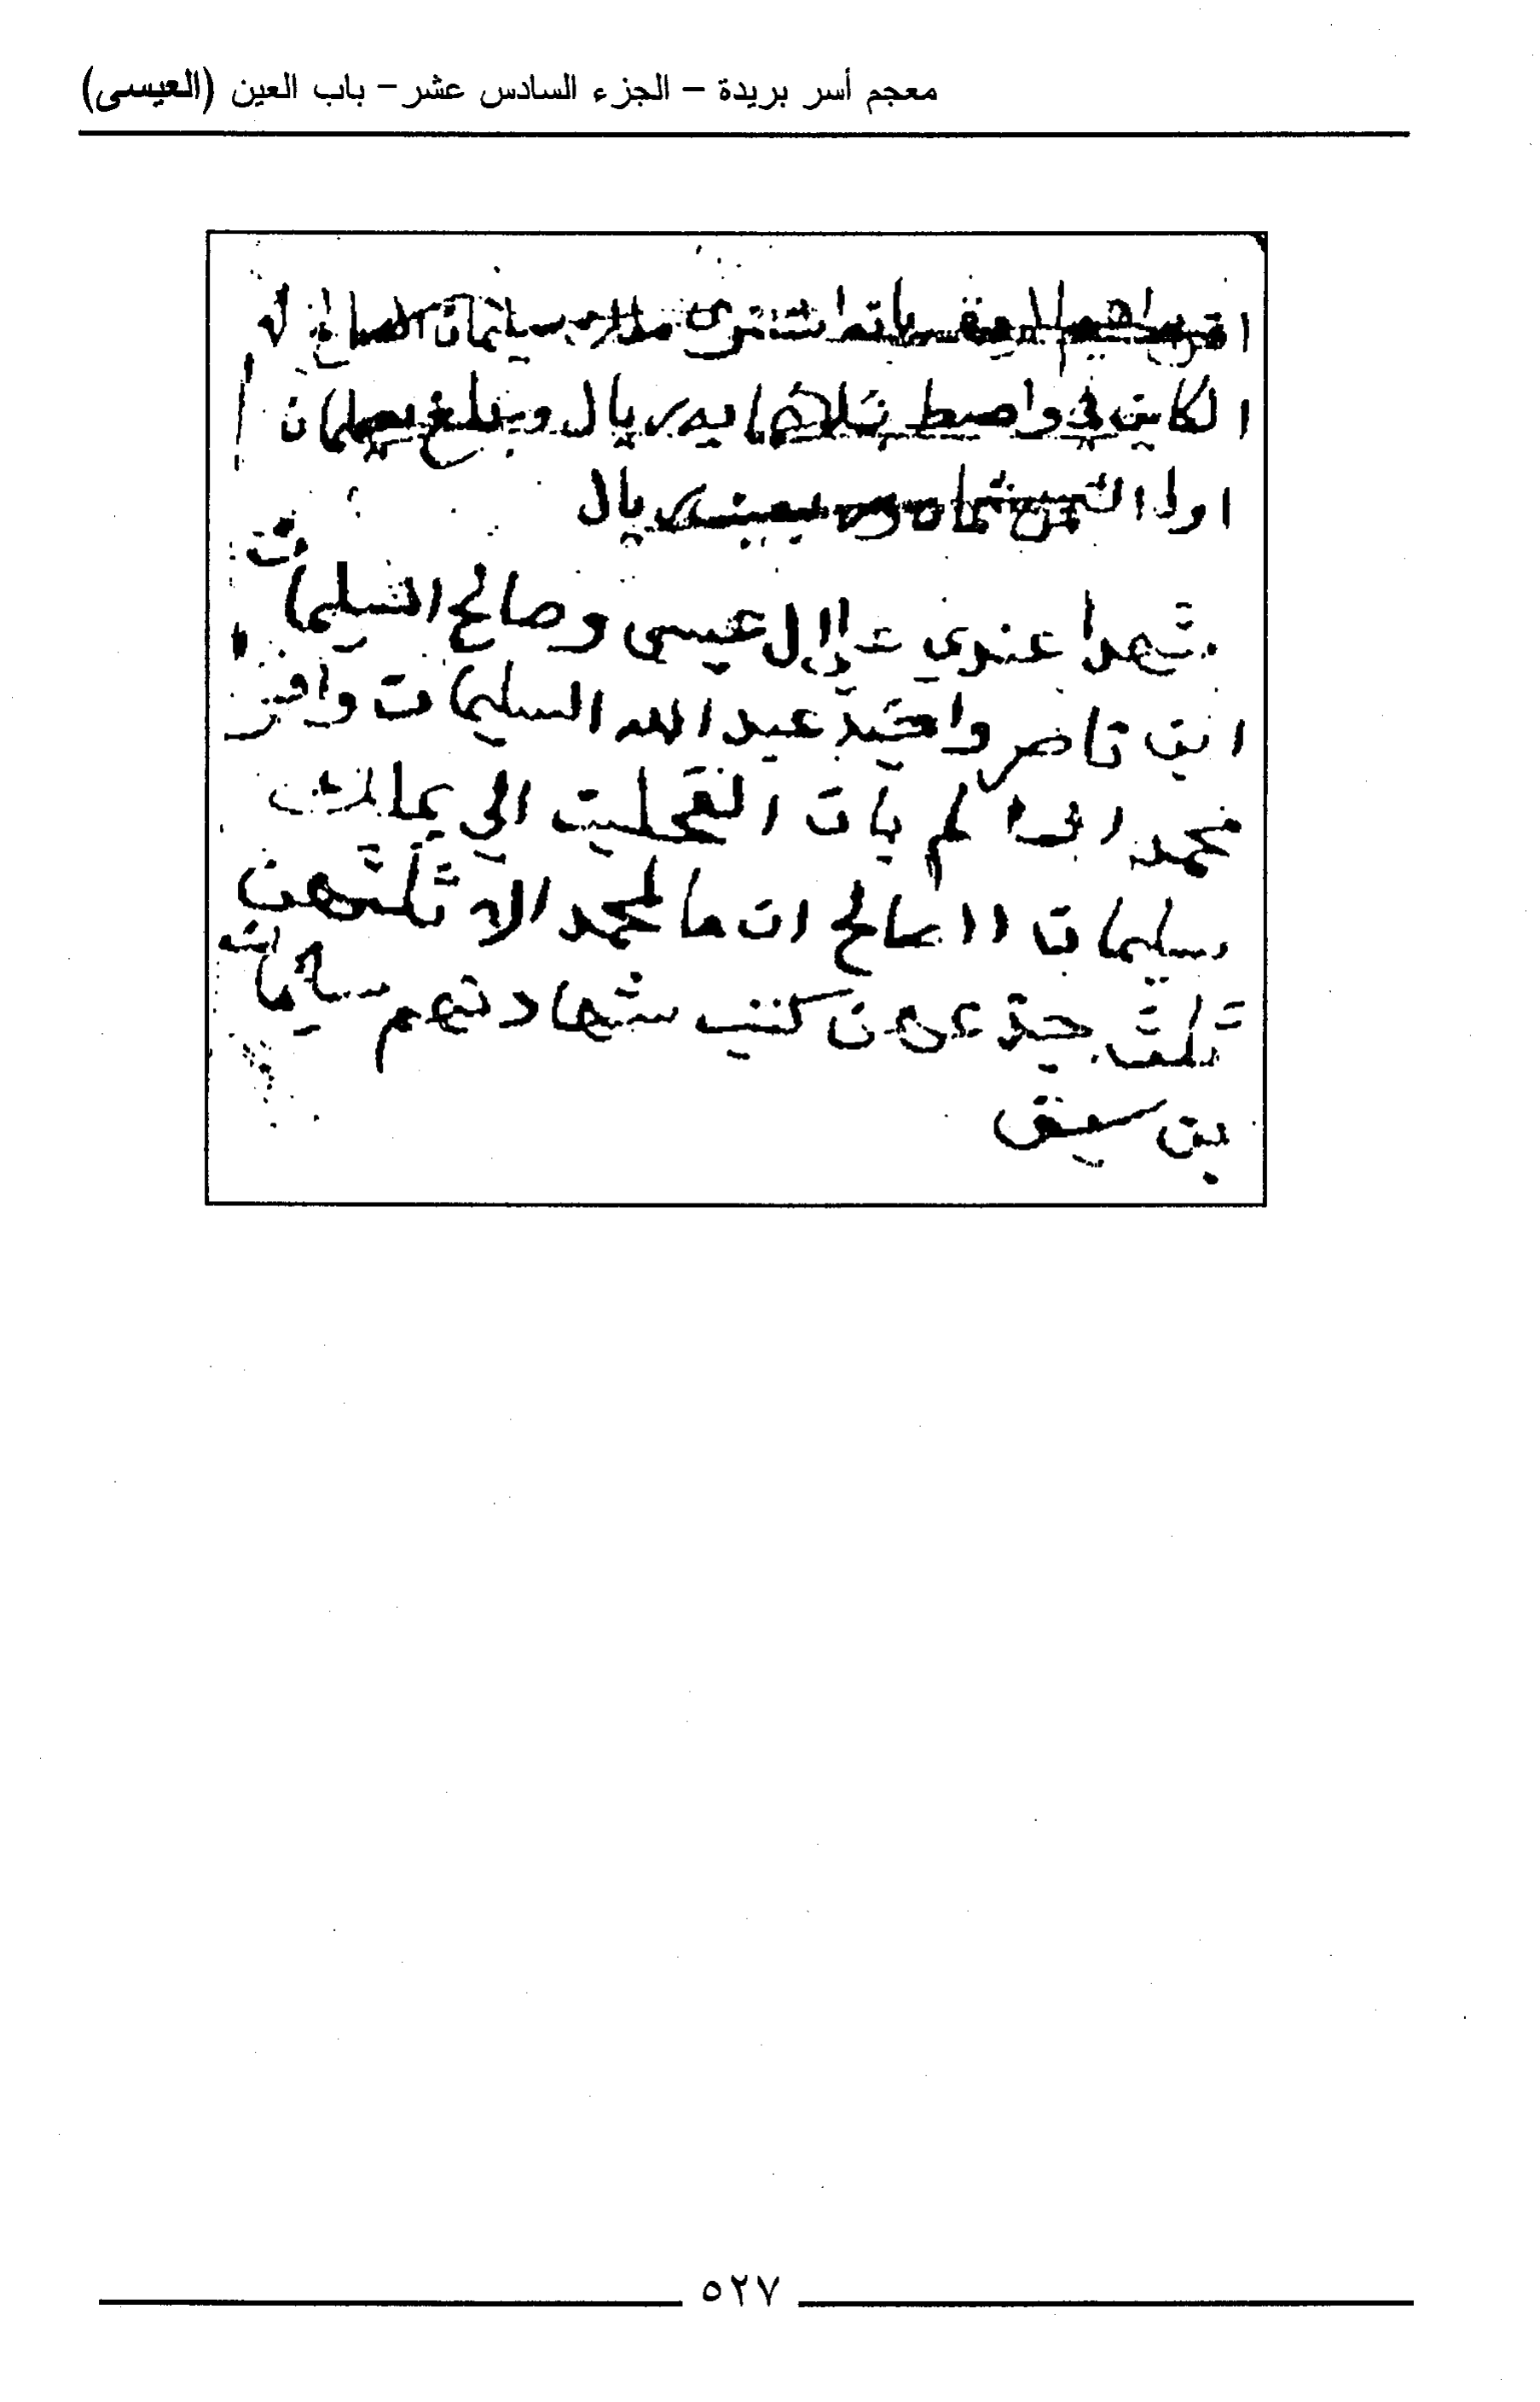 معجم أسر بريدة – الجزء السادس عشر – باب العين (العيسى)
اقر براهيم بانه اشترى من سليمان الصالح
الكاين في واصط بثلاثماية ريال وبلغ سليمان
اول الثمن ثمان وسبعين ريال
شهدا عندي علي ال عيسى وصالح السليمان
ابن ناصر عبد الله السليمان واقر
محمد بان الفحلين الي بملك
سليمان الصالح ان ما لمحمد الا ثلثهن
ثلث عن كتب شهادتهم سليمان
بن سيف
٥٢٧